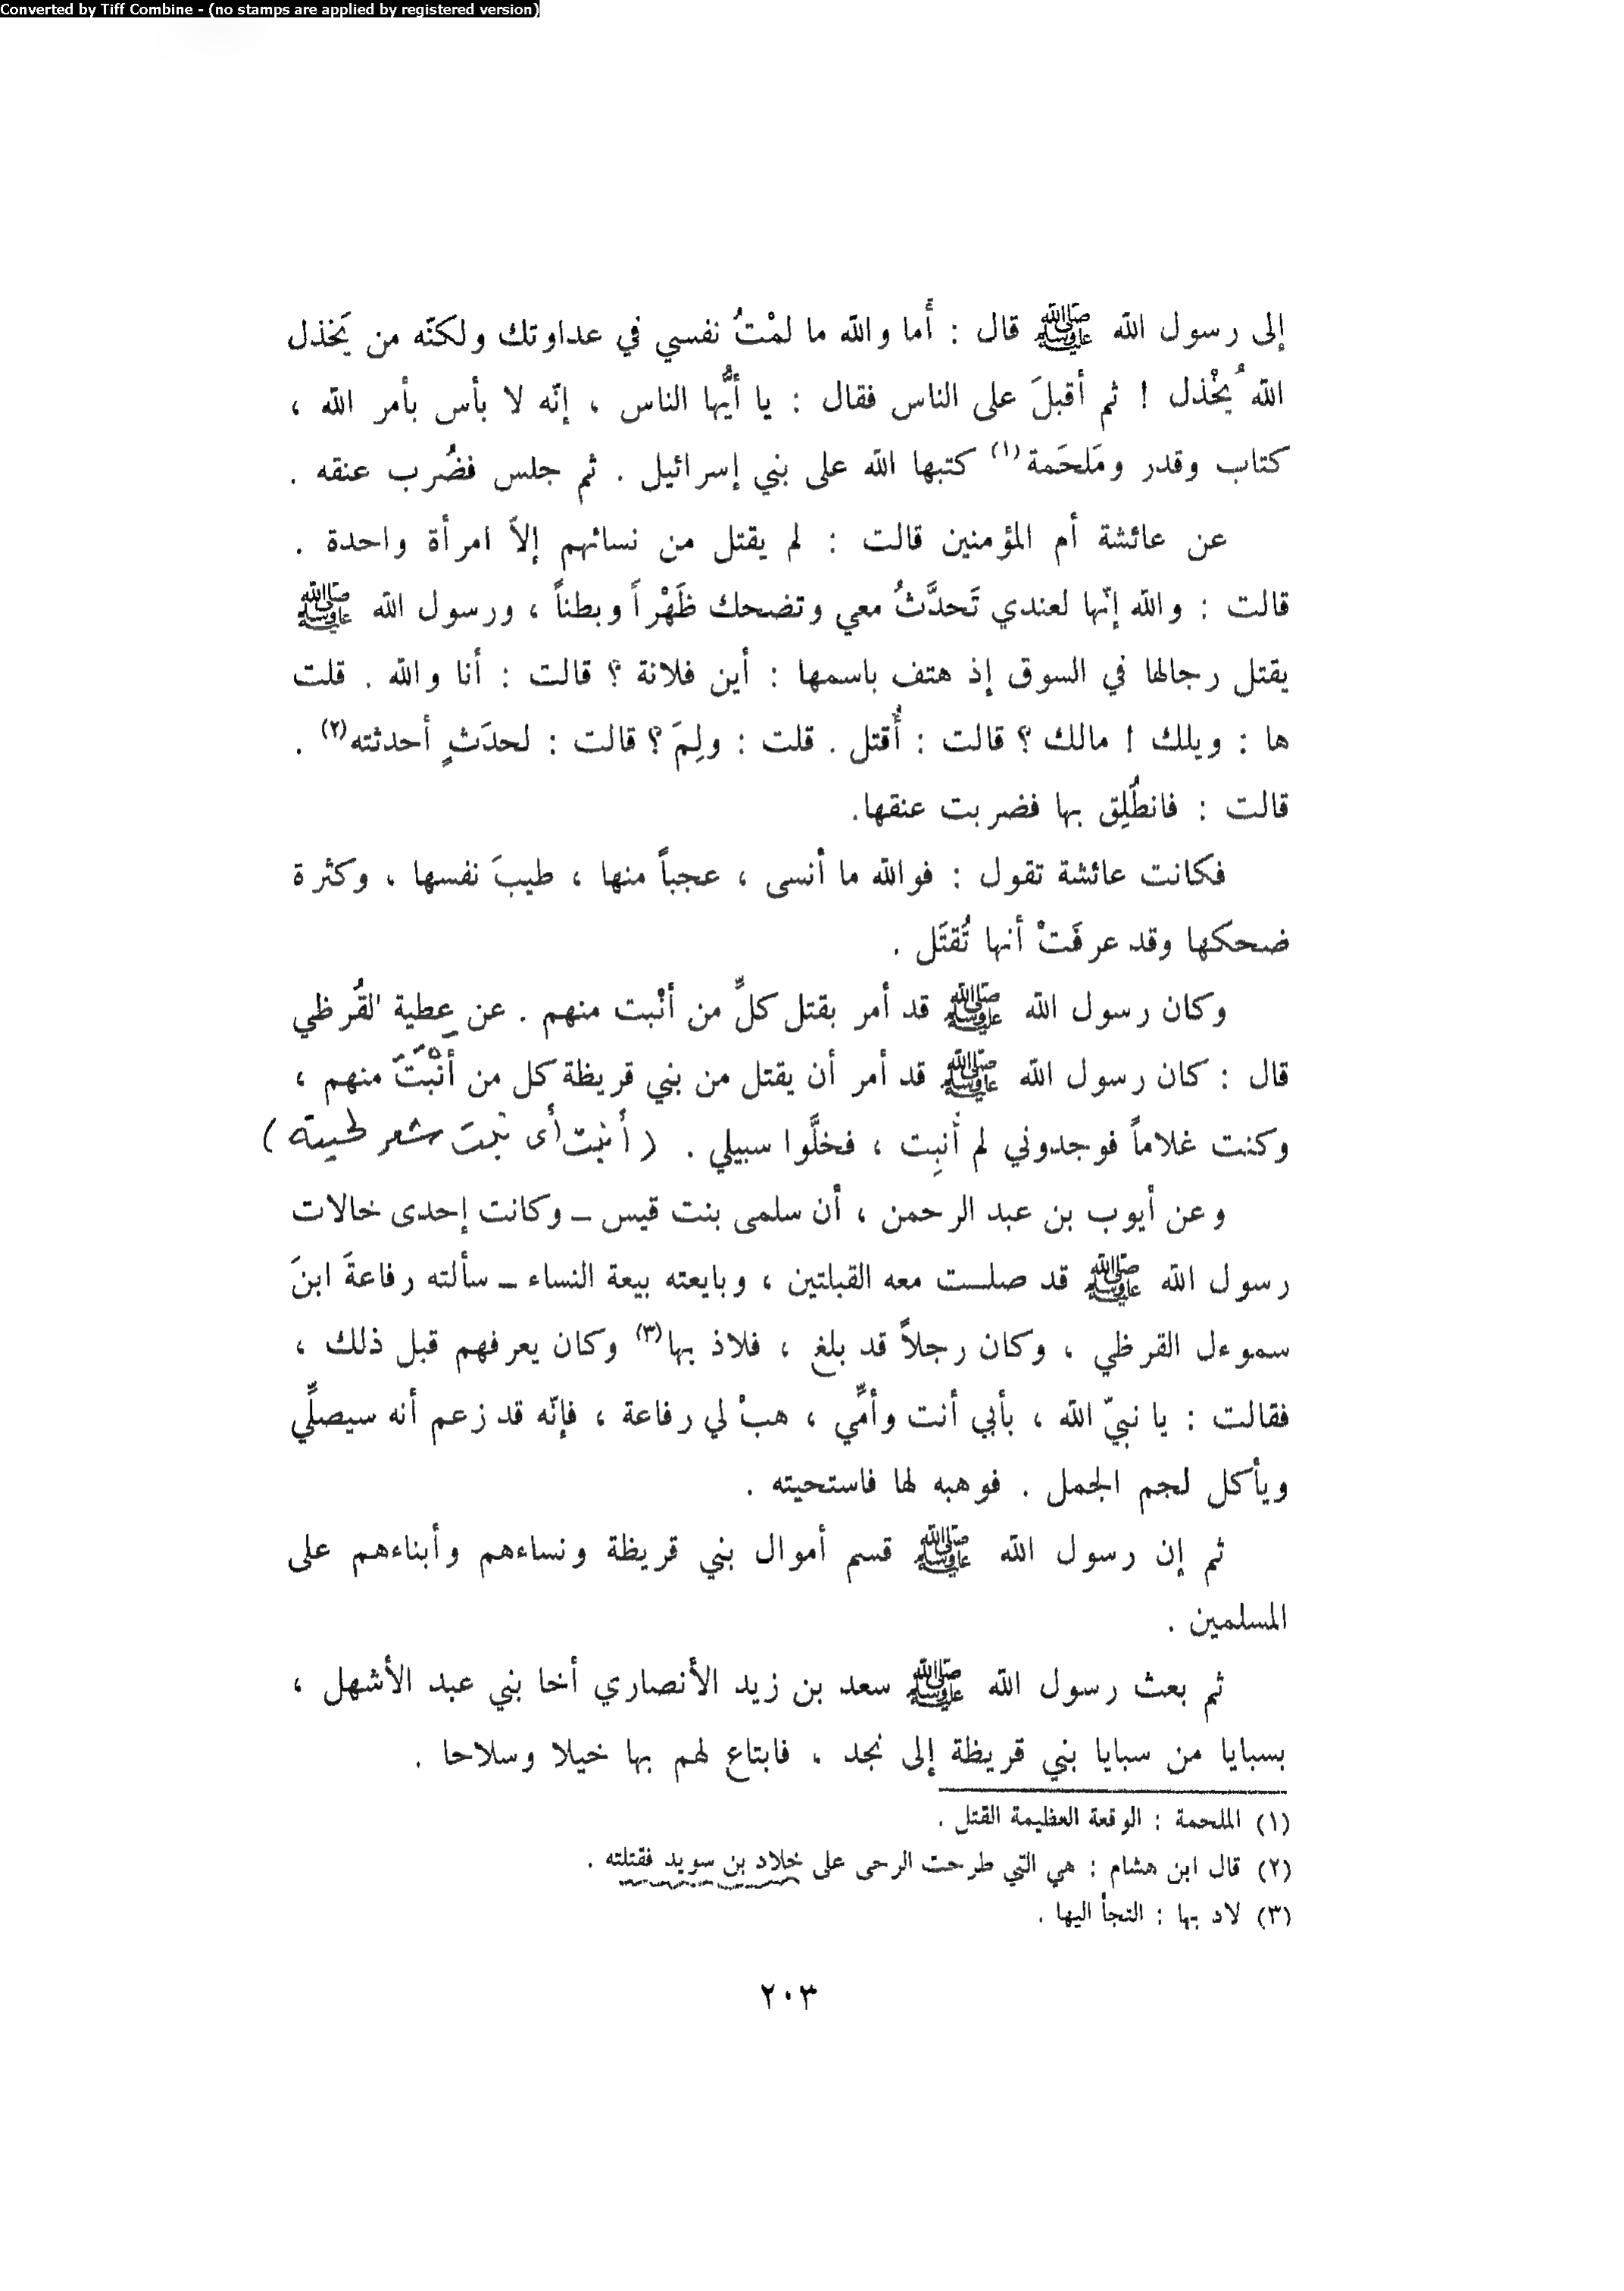 Converted by Tiff Combine - (no stamps are applied by registered version)
إلى رسول الله ﷺ قال : أما والله ما لمْتُ نفسي في عداوتك ولكنّه من يَخذل
اللهَ يُخْذل ! ثم أقبلَ على الناس فقال : يا أيُّها الناس ، إنّه لا بأس بأمر الله ،
كتاب وقدر ومَلحَمة(١) كتبها الله على بني إسرائيل . ثم جلس فضُرب عنقه .
عن عائشة أم المؤمنين قالت : لم يقتل من نسائهم إلاّ امرأة واحدة .
قالت : والله إنّها لعندي تَحدَّثُ معي وتضحك ظَهْراً وبطناً ، ورسول الله ﷺ
يقتل رجالها في السوق إذ هتف باسمها : أين فلانة ؟ قالت : أنا والله . قلت
ها : ويلك ! مالك ؟ قالت : أُقتل . قلت : ولِمَ ؟ قالت : لحدَثٍ أحدثته(٢) .
قالت : فانطُلِق بها فضربت عنقها.
فكانت عائشة تقول : فوالله ما أنسى ، عجباً منها ، طيبَ نفسها ، وكثرة
ضحكها وقد عرفَتْ أنها تُقتَل .
وكان رسول الله ﷺ قد أمر بقتل كلِّ من أنْبت منهم . عن عطية القُرظي
قال : كان رسول الله ﷺ قد أمر أن يقتل من بني قريظة كل من أَنْبَتَ منهم ،
وكنت غلاماً فوجدوني لم أُنبِت ، فخلَّوا سبيلي . ( أنبت أى نبت شعر لحيته )
وعن أيوب بن عبد الرحمن ، أن سلمى بنت قيس – وكانت إحدى خالات
رسول الله ﷺ قد صلت معه القبلتين ، وبايعته بيعة النساء – سألته رفاعةَ ابنَ
سموءل القرظي ، وكان رجلاً قد بلغ ، فلاذ بها(٣) وكان يعرفهم قبل ذلك ،
فقالت : يا نبيّ الله ، بأبي أنت وأمِّي ، هبْ لي رفاعة ، فإنّه قد زعم أنه سيصلِّي
ويأكل لحم الجمل . فوهبه لها فاستحيته .
ثم إن رسول الله ﷺ قسم أموال بني قريظة ونساءهم وأبناءهم على
المسلمين .
ثم بعث رسول الله ﷺ سعد بن زيد الأنصاري أخا بني عبد الأشهل ،
بسبايا من سبايا بني قريظة إلى نجد ، فابتاع لهم بها خيلا وسلاحا .
(١) الملحمة : الوقعة العظيمة القتل .
(٢) قال ابن هشام : هي التي طرحت الرحى على خلاد بن سويد فقتلته .
(٣) لاذ بها : التجأ اليها .
٢٠٣